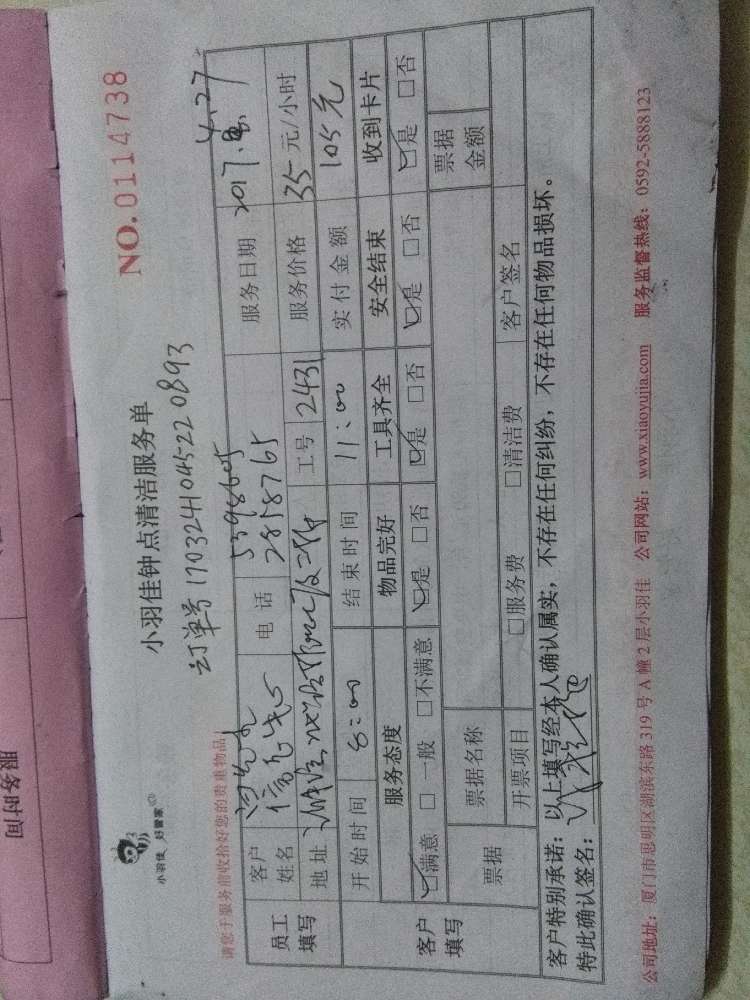 小羽佳 好管家
小羽佳钟点清洁服务单
NO.0114738
订单号 170324104522 0893
请您于服务前收拾好您的贵重物品
员工填写
客户姓名 电话 5398605 2858765 服务日期 2017. 4.27
地址 工号 2431 服务价格 35 元/小时
开始时间 8:00 结束时间 11:00 实付金额 105元
客户填写
服务态度 物品完好 工具齐全 安全结束 收到卡片
☑满意 □一般 □不满意 ☑是 □否 ☑是 □否 ☑是 □否 ☑是 □否
票据 票据名称 票据金额
开票项目 □服务费 □清洁费 客户签名
客户特别承诺：以上填写经本人确认属实，不存在任何纠纷，不存在任何物品损坏。
特此确认签名：
公司地址：厦门市思明区湖滨东路 319 号 A 幢 2 层小羽佳 公司网站：www.xiaoyujia.com 服务监督热线：0592-5888123
服务时间